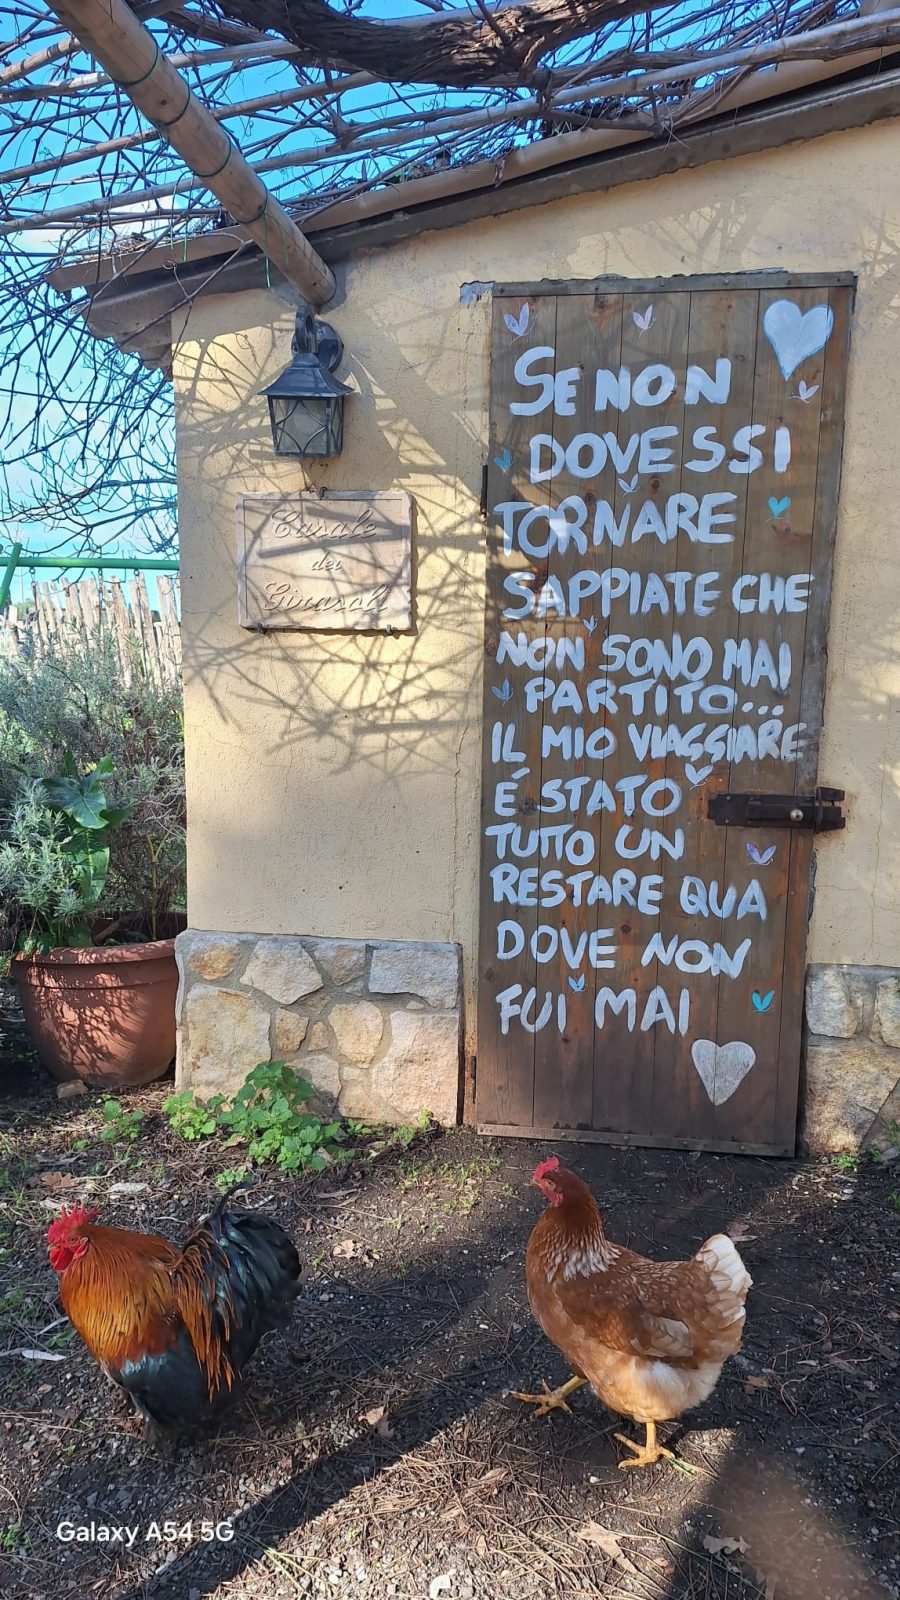 Casale
dei
Girasoli
SE NON
DOVESSI
TORNARE
SAPPIATE CHE
NON SONO MAI
PARTITO...
IL MIO VIAGGIARE
É STATO
TUTTO UN
RESTARE QUA
DOVE NON
FUI MAI
Galaxy A54 5G